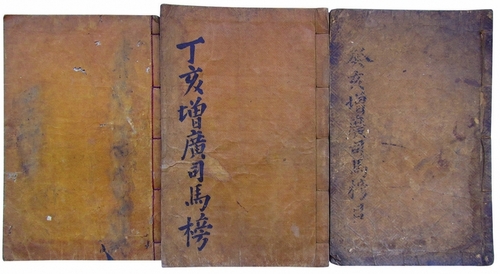 丁亥增廣司馬榜
癸亥增廣司馬榜